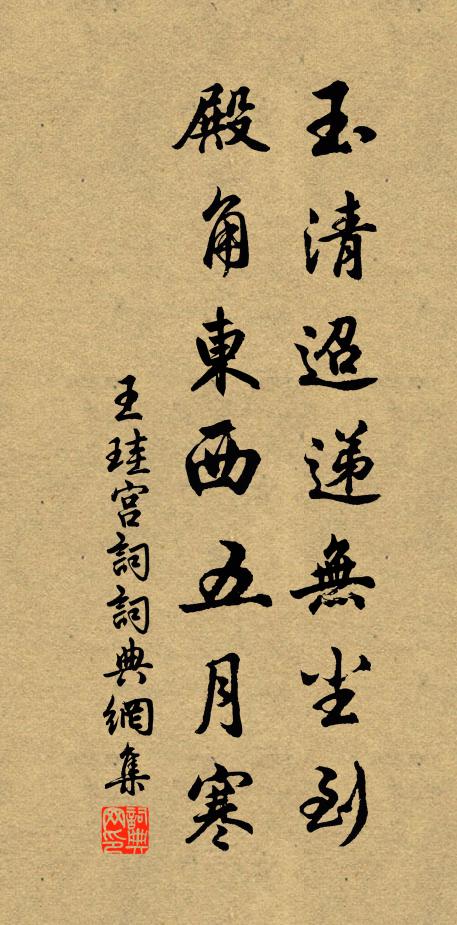 玉清迢递無尘到
殿角東西五月寒
王珪宫詞詞典網集
詞典网印